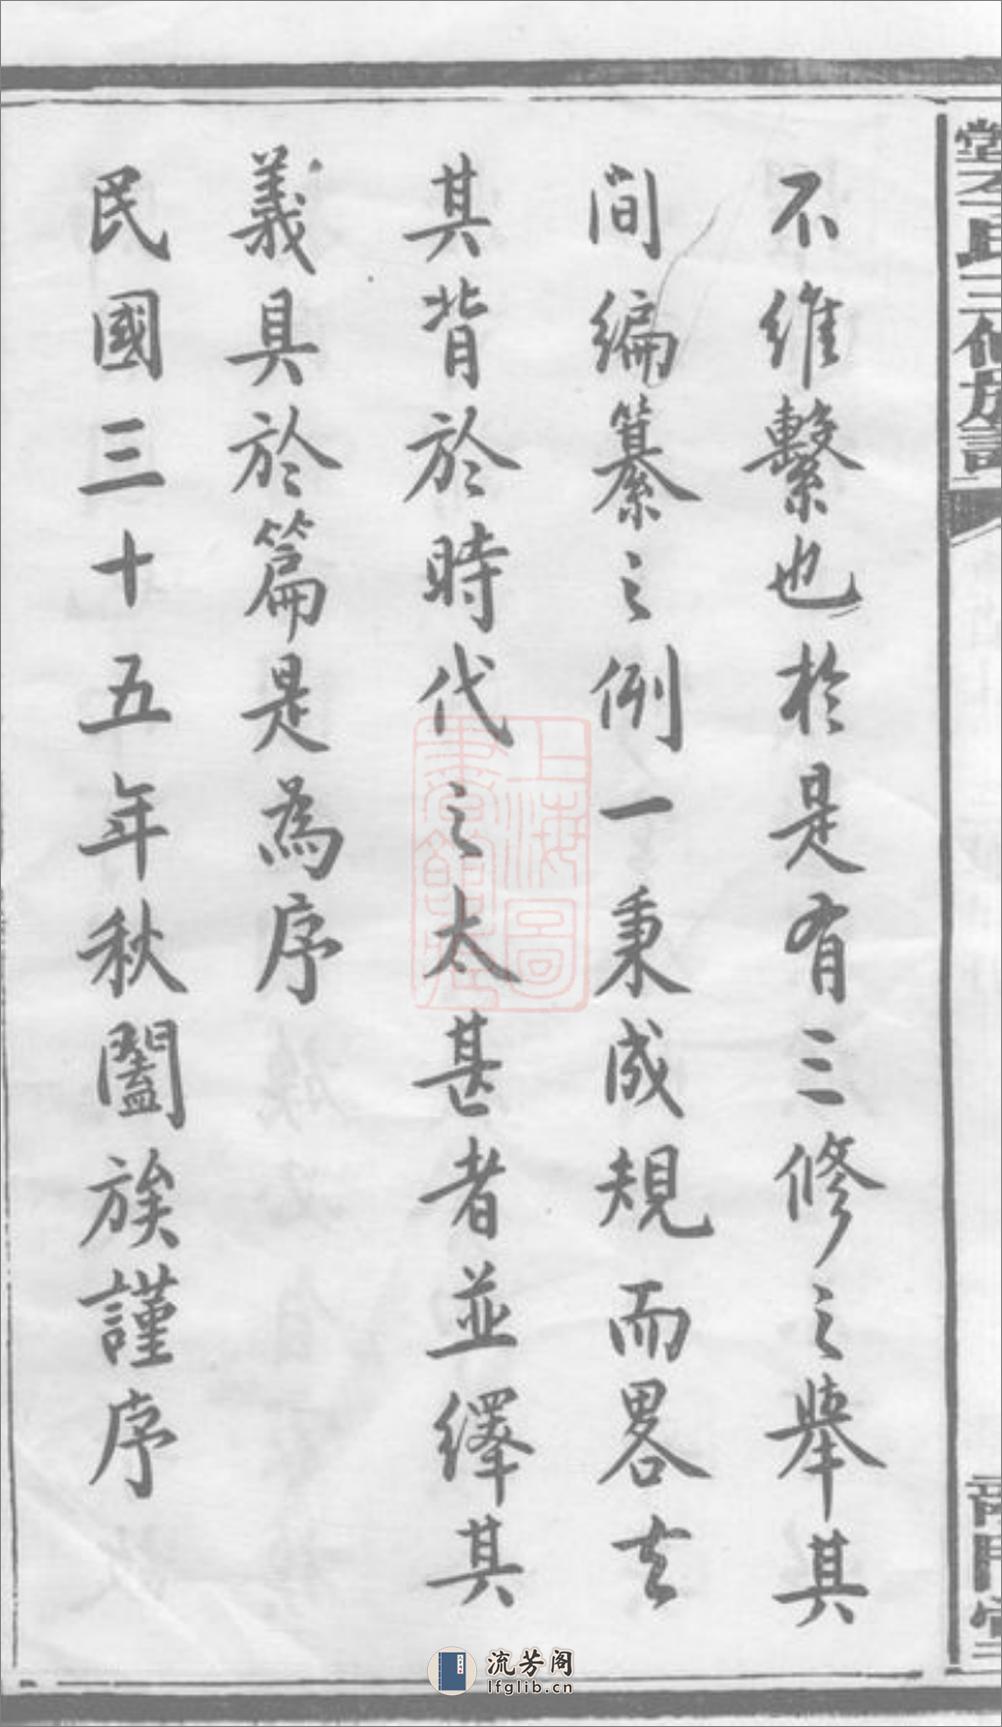 李氏三修族譜
不維繫也於是有三修之舉其
間編纂之例一秉成規而畧去
其背於時代之太甚者並繹其
義具於篇是為序
民國三十五年秋闔族謹序
上海圖
書館藏
流芳阁
lfglib.cn